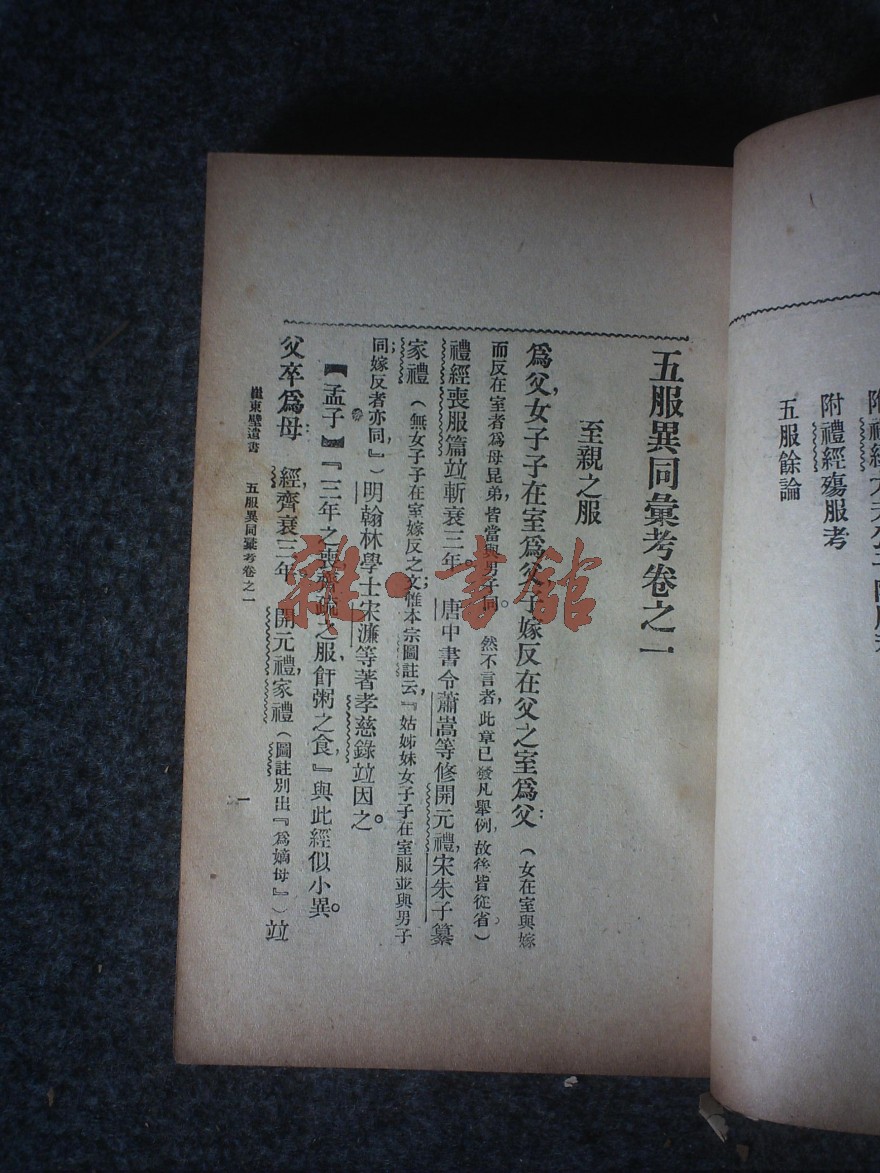 附禮經殤服考
五服餘論
五服異同彙考卷之一
至親之服
爲父，女子子在室爲父，子嫁反在父之室爲父：（女在室與嫁
而反在室者爲母昆弟，皆當與男子同。然不言者，此章已發凡舉例，故後皆從省）
禮經喪服篇竝斬衰三年。唐中書令蕭嵩等修開元禮，宋朱子纂
家禮（無女子子在室嫁反之文；惟本宗圖註云，『姑姊妹女子子在室服並與男子
同；嫁反者亦同，』）明翰林學士宋濂等著孝慈錄竝因之。
【孟子】『三年之喪，齊疏之服，飦粥之食，』與此經似小異。
父卒爲母：經，齊衰三年。開元禮，家禮（圖註別出『爲嫡母』）竝
崔東壁遺書　五服異同彙考卷之一
一
雜·書館